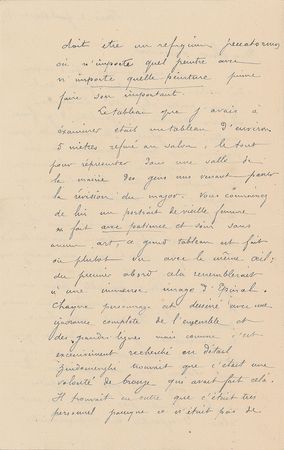 doit être un refugium peccatorum
où n'importe quel peintre avec
n'importe quelle peinture puisse
faire son important.
Le tableau que j'avais à
examiner était un tableau d'environ
5 mètres refusé au salon, le tout
pour représenter dans une salle de
la mairie des gens nus venant passer
la révision du major. Vous connaissez
de lui un portrait de vieille femme
fait avec patience et soin sans
aucun art, ce grand tableau est fait
ou plutôt vu avec le même œil;
du premier abord cela ressemblerait
à une immense image d'Epinal.
Chaque personnage est dessiné avec une
ignorance complète de l'ensemble et
des grandes lignes mais comme c'est
excessivement recherché en détail
Zandomeneghi trouvait que c'était une
volonté de bronze qui avait fait cela.
Il trouvait en outre que c'était très
personnel parce que ce n'était pas de